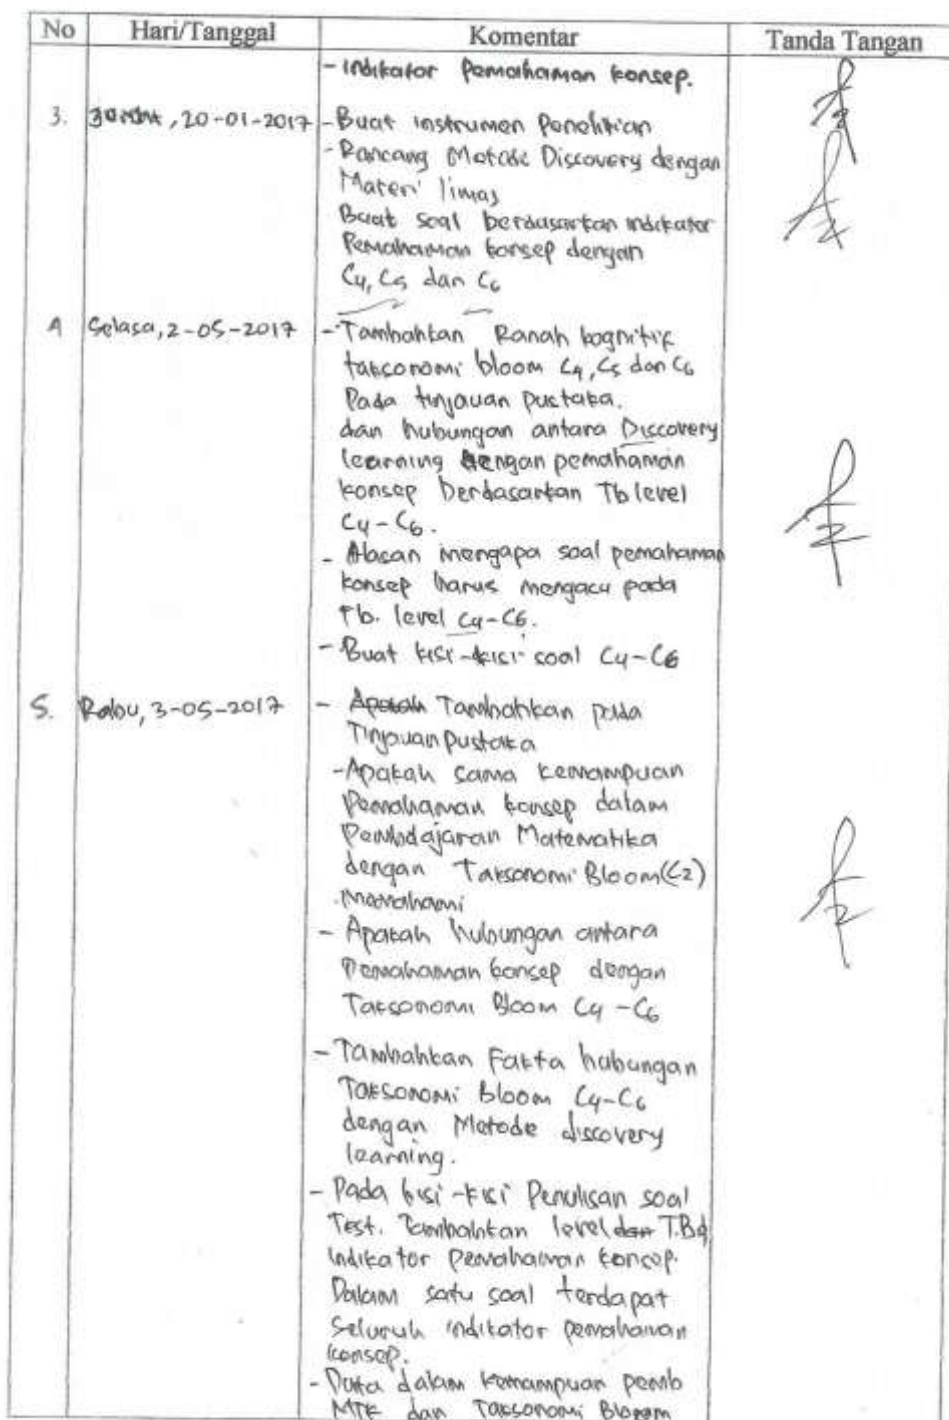 No Hari/Tanggal Komentar Tanda Tangan
- Indikator Pemahaman konsep.
3. , 20-01-2017 - Buat instrumen Penelitian
- Rancang Metode Discovery dengan
Materi limas
Buat soal berdasarkan indikator
Pemahaman konsep dengan
C4, C5 dan C6
4 Selasa, 2-05-2017 - Tambahkan Ranah kognitif
taksonomi bloom C4, C5 dan C6
Pada tinjauan pustaka.
dan hubungan antara Discovery
learning dengan pemahaman
konsep berdasarkan Tb level
C4-C6.
- Alasan mengapa soal pemahaman
konsep harus mengacu pada
Tb. level C4-C6.
- Buat kisi-kisi soal C4-C6
5. Rabu, 3-05-2017 - Apakah Tambahkan pada
Tinjauan pustaka
- Apakah sama kemampuan
Pemahaman konsep dalam
Pembelajaran Matematika
dengan Taksonomi Bloom (C2)
Memahami
- Apakah hubungan antara
Pemahaman konsep dengan
Taksonomi Bloom C4-C6
- Tambahkan Fakta hubungan
Taksonomi Bloom C4-C6
dengan Metode discovery
learning.
- Pada kisi-kisi Penulisan soal
Test. Tambahkan level dan T.B
Indikator pemahaman konsep.
Dalam satu soal terdapat
Seluruh indikator pemahaman
konsep.
- dalam kemampuan pemb
MTK dan Taksonomi Bloom